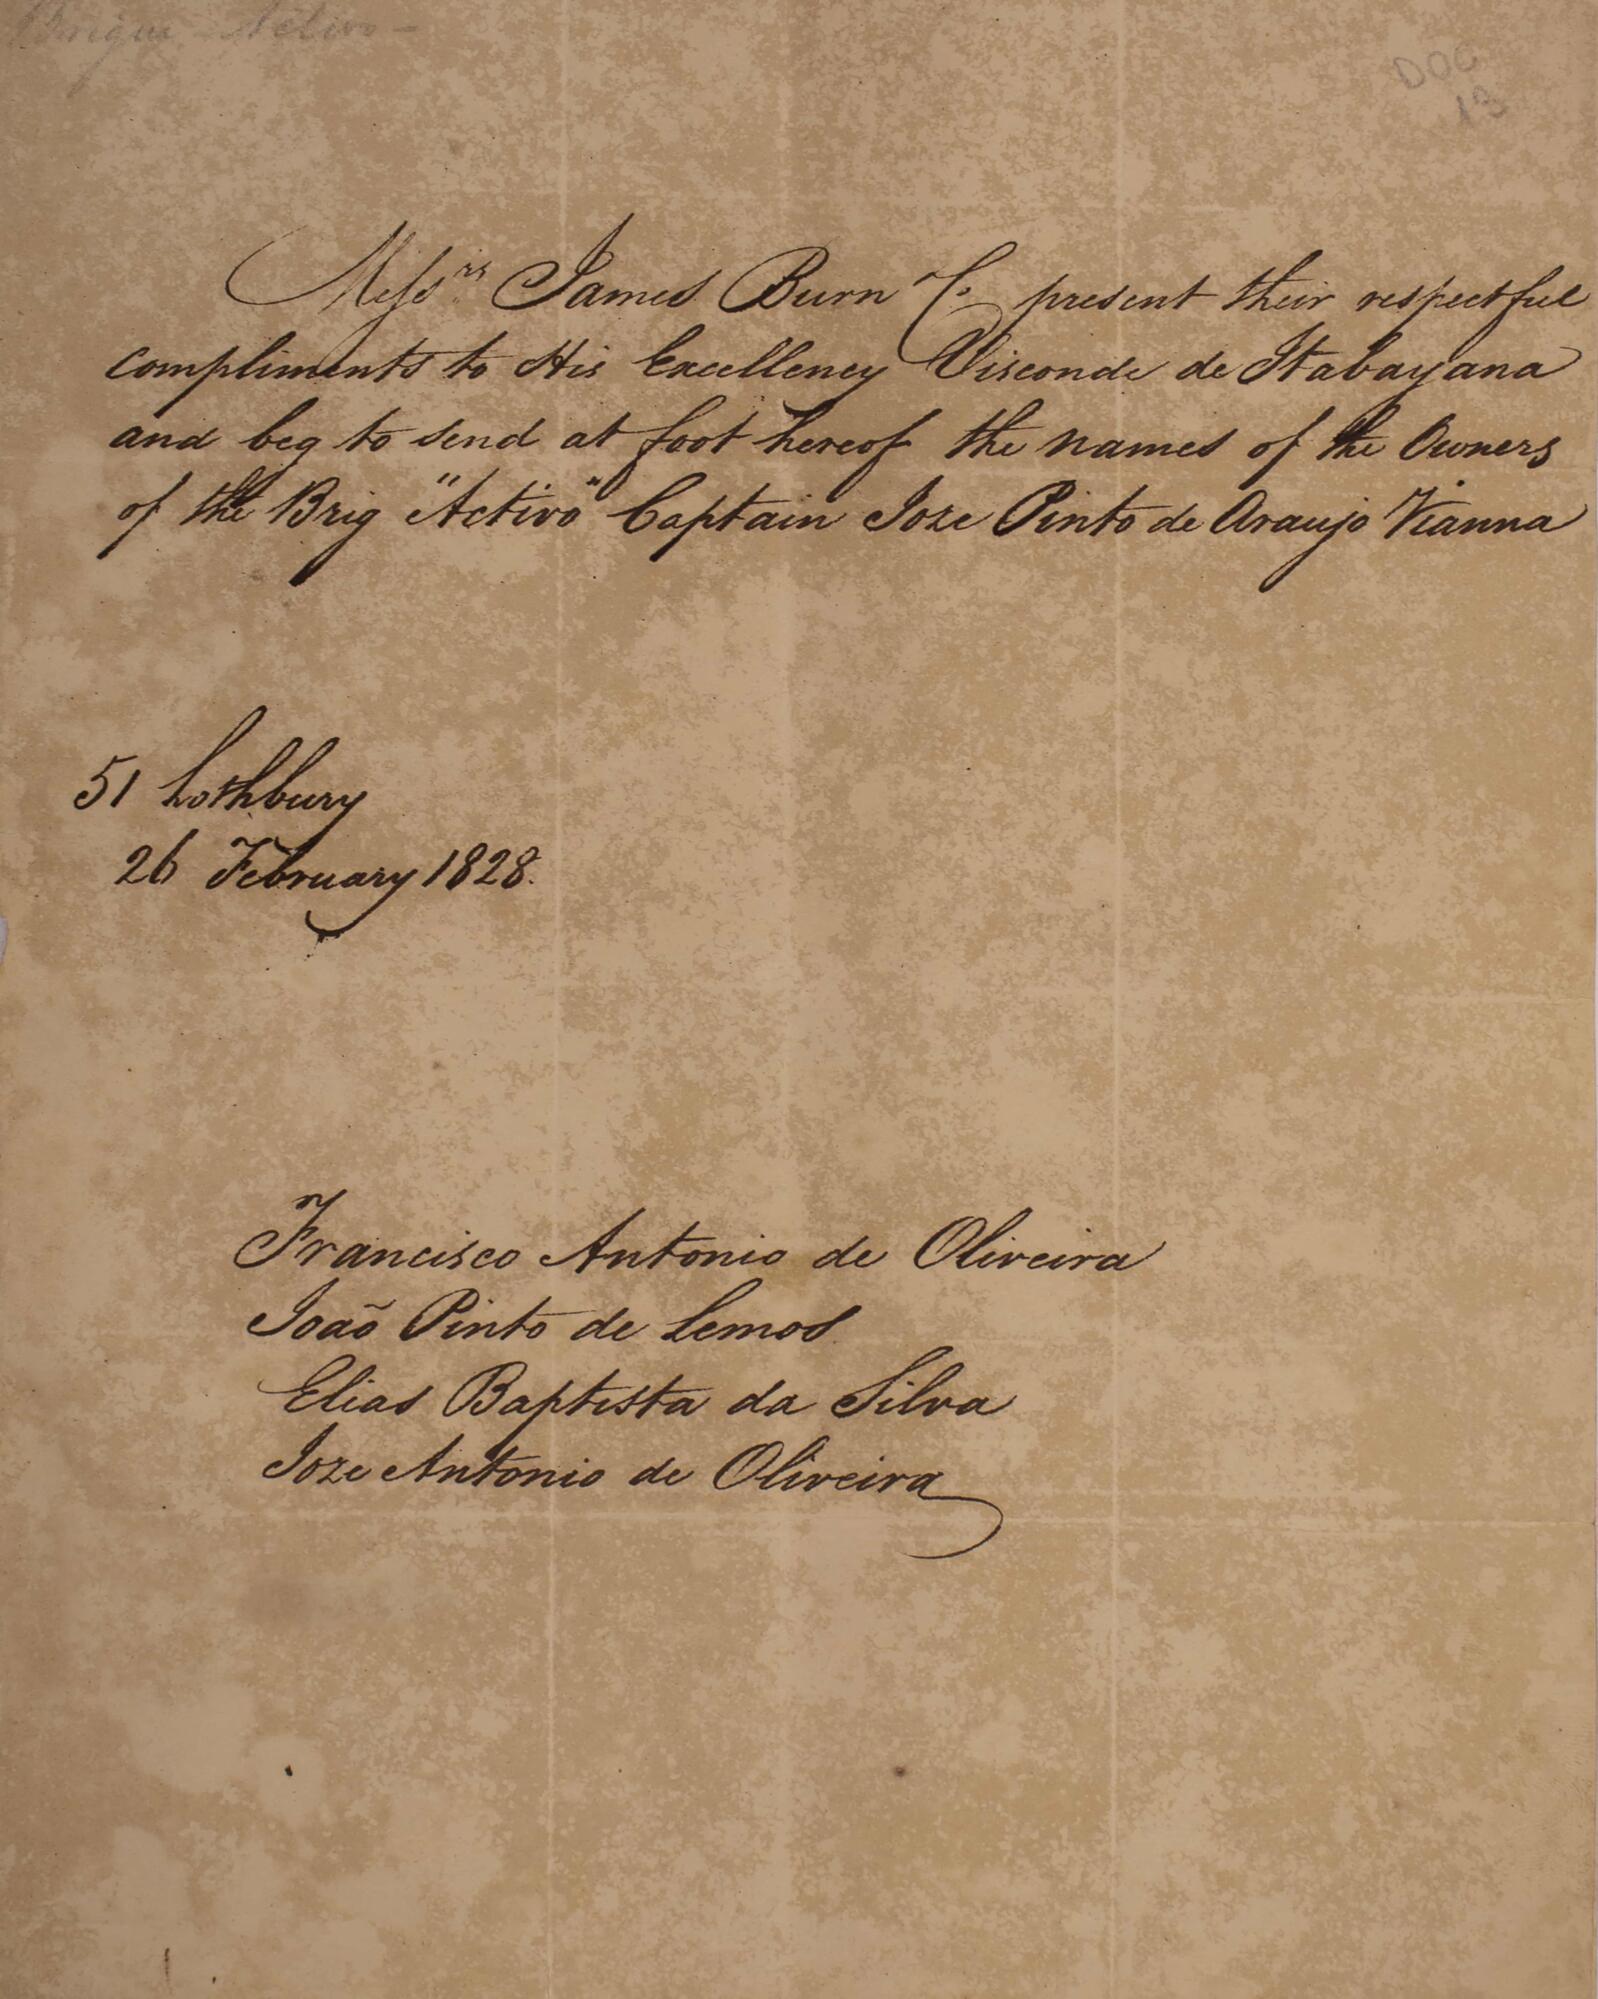 Brigue Activo -
DOC
13
Mess.rs James Burn Co. present their respectful
compliments to His Excellency Visconde de Itabayana
and beg to send at foot hereof the names of the Owners
of the Brig "Activo" Captain Joze Pinto de Araujo Vianna
51 Lothbury
26 February 1828.
Francisco Antonio de Oliveira
João Pinto de Lemos
Elias Baptista da Silva
Joze Antonio de Oliveira